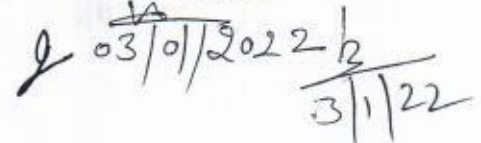 03/01/2022
3/1/22